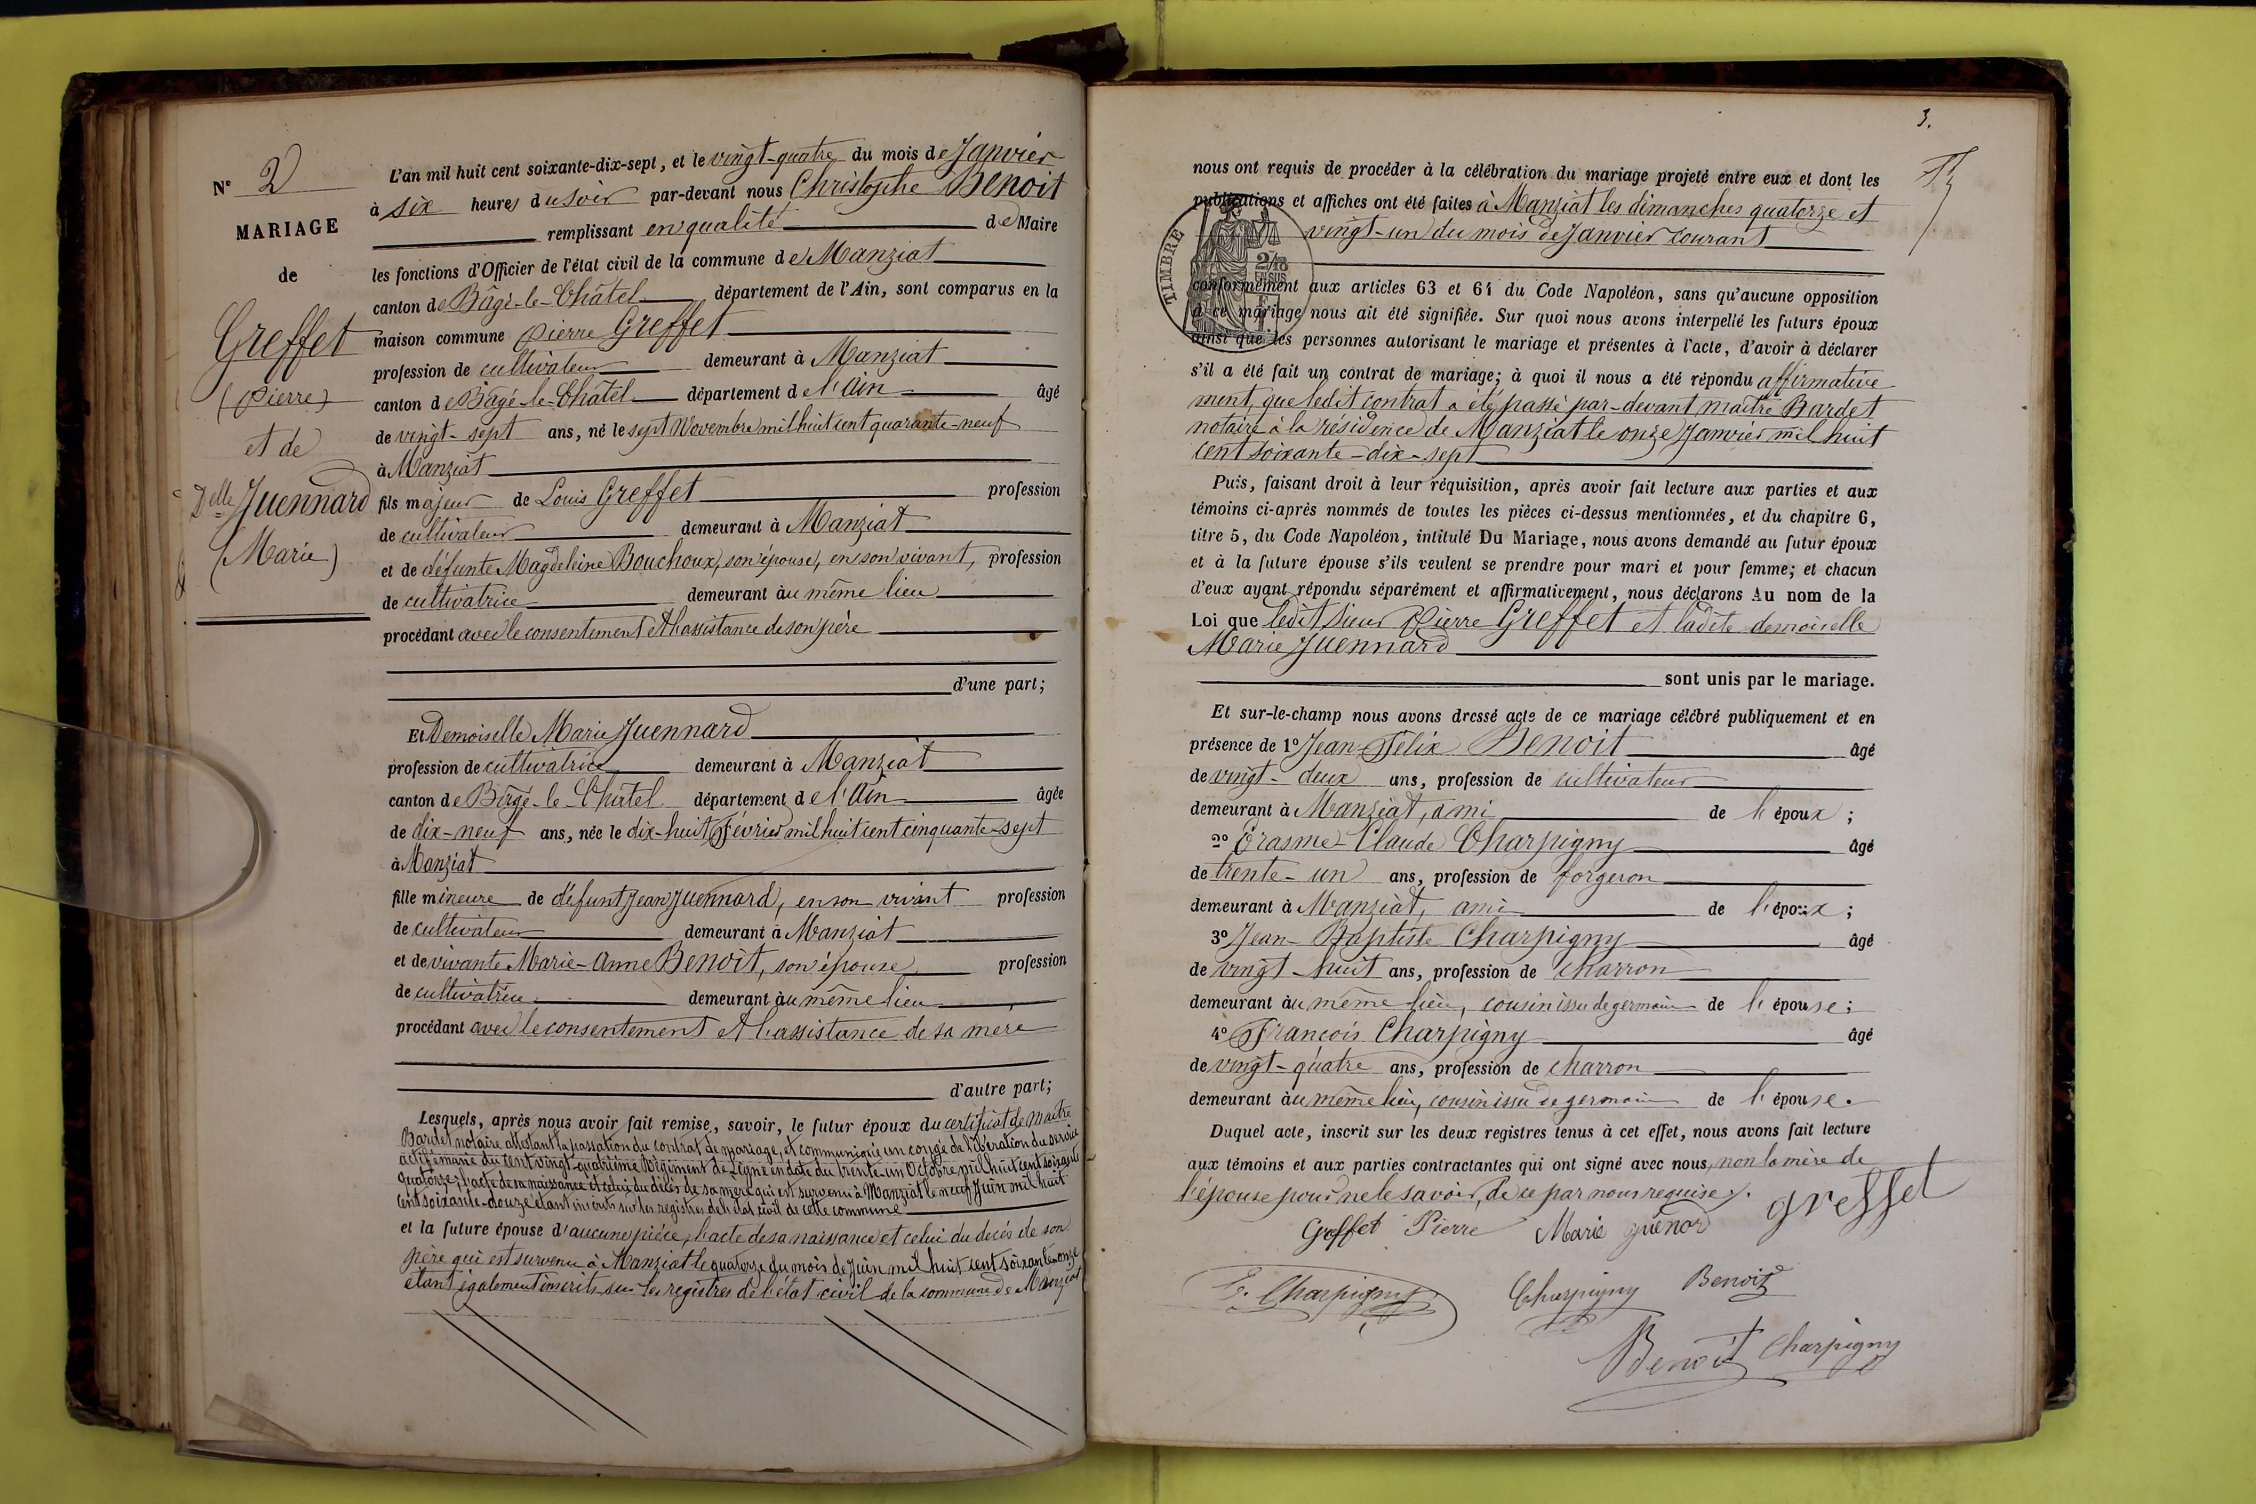 N° 2
MARIAGE
de
Greffet
(Pierre)
et de
Delle Juennard
(Marie)
L'an mil huit cent soixante-dix-sept, et le vingt-quatre du mois de Janvier
à six heures du soir par-devant nous Christophe Benoit
remplissant en qualité de Maire
les fonctions d'Officier de l'état civil de la commune de Manziat
canton de Bâgé-le-Châtel département de l'Ain, sont comparus en la
maison commune Pierre Greffet
profession de cultivateur demeurant à Manziat
canton de Bâgé-le-Châtel département de l'Ain âgé
de vingt-sept ans, né le sept Novembre mil huit cent quarante-neuf
à Manziat
fils majeur de Louis Greffet profession
de cultivateur demeurant à Manziat
et de défunte Magdeleine Bouchoux, son épouse, en son vivant, profession
de cultivatrice demeurant au même lieu
procédant avec le consentement et l'assistance de son père
d'une part;
Et Demoiselle Marie Juennard
profession de cultivatrice demeurant à Manziat
canton de Bâgé-le-Châtel département de l'Ain âgée
de dix-neuf ans, née le dix-huit Février mil huit cent cinquante-sept
à Manziat
fille mineure de défunt Jean Juennard, en son vivant profession
de cultivateur demeurant à Manziat
et de vivante Marie-Anne Benoit, son épouse profession
de cultivatrice demeurant au même lieu
procédant avec le consentement et l'assistance de sa mère
d'autre part;
Lesquels, après nous avoir fait remise, savoir, le futur époux du certificat de maître
Bardet notaire attestant la passation du contrat de mariage, et communiqué un congé de libération du service
actif émané du cent vingt-quatrième Régiment de Ligne en date du trente-un Octobre mil huit cent soixante
quatorze; l'acte de sa naissance et celui du décès de sa mère qui est survenu à Manziat le neuf Juin mil huit
cent soixante-douze étant inscrits sur les registres de l'état civil de cette commune
et la future épouse d'aucune pièce, l'acte de sa naissance et celui du décès de son
père qui est survenu à Manziat le quatorze du mois de Juin mil huit cent soixante-onze
étant également inscrits sur les registres de l'état civil de la commune de Manziat
3.
nous ont requis de procéder à la célébration du mariage projeté entre eux et dont les
publications et affiches ont été faites à Manziat les dimanches quatorze et
vingt-un du mois de Janvier courant
TIMBRE
conformément aux articles 63 et 64 du Code Napoléon, sans qu'aucune opposition
à ce mariage nous ait été signifiée. Sur quoi nous avons interpellé les futurs époux
ainsi que les personnes autorisant le mariage et présentes à l'acte, d'avoir à déclarer
s'il a été fait un contrat de mariage; à quoi il nous a été répondu affirmative
ment, que ledit contrat a été passé par-devant maître Bardet
notaire à la résidence de Manziat le onze Janvier mil huit
cent soixante-dix-sept
Puis, faisant droit à leur réquisition, après avoir fait lecture aux parties et aux
témoins ci-après nommés de toutes les pièces ci-dessus mentionnées, et du chapitre 6,
titre 5, du Code Napoléon, intitulé Du Mariage, nous avons demandé au futur époux
et à la future épouse s'ils veulent se prendre pour mari et pour femme; et chacun
d'eux ayant répondu séparément et affirmativement, nous déclarons Au nom de la
Loi que ledit sieur Pierre Greffet et ladite demoiselle
Marie Juennard
sont unis par le mariage.
Et sur-le-champ nous avons dressé acte de ce mariage célébré publiquement et en
présence de 1° Jean-Félix Benoit âgé
de vingt-deux ans, profession de cultivateur
demeurant à Manziat, ami de l'époux;
2° Erasme-Claude Charpigny âgé
de trente-un ans, profession de forgeron
demeurant à Manziat, ami de l'époux;
3° Jean-Baptiste Charpigny âgé
de vingt-huit ans, profession de charron
demeurant au même lieu, cousin issu de germain de l'épouse;
4° François Charpigny âgé
de vingt-quatre ans, profession de charron
demeurant au même lieu, cousin issu de germain de l'épouse.
Duquel acte, inscrit sur les deux registres tenus à cet effet, nous avons fait lecture
aux témoins et aux parties contractantes qui ont signé avec nous, non la mère de
l'épouse pour ne le savoir, de ce par nous requise.
greffet
Greffet Pierre Marie guénard
E. Charpigny Charpigny Benoit
Benoit Charpigny